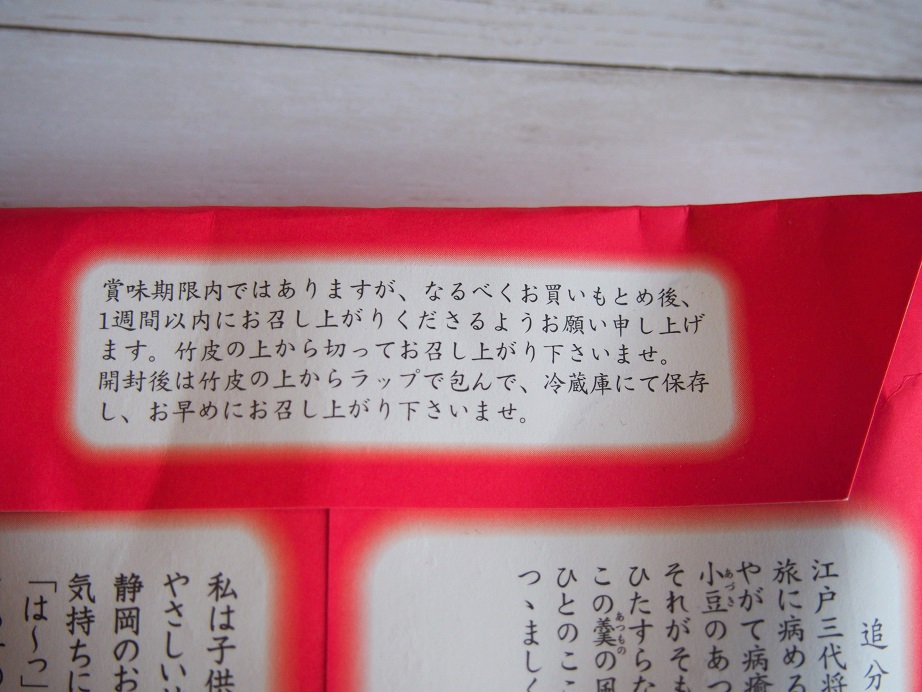 賞味期限内ではありますが、なるべくお買いもとめ後、
1週間以内にお召し上がりくださるようお願い申し上げ
ます。竹皮の上から切ってお召し上がり下さいませ。
開封後は竹皮の上からラップで包んで、冷蔵庫にて保存
し、お早めにお召し上がり下さいませ。
追分
江戸三代将
旅に病め
やがて病癒
小豆のあつ
あづき
それがそも
ひたすらな
この羹の風
あつもの
ひとのここ
つゝましく
私は子供
やさしい
静岡のお
気持ちに
「は〜っ」